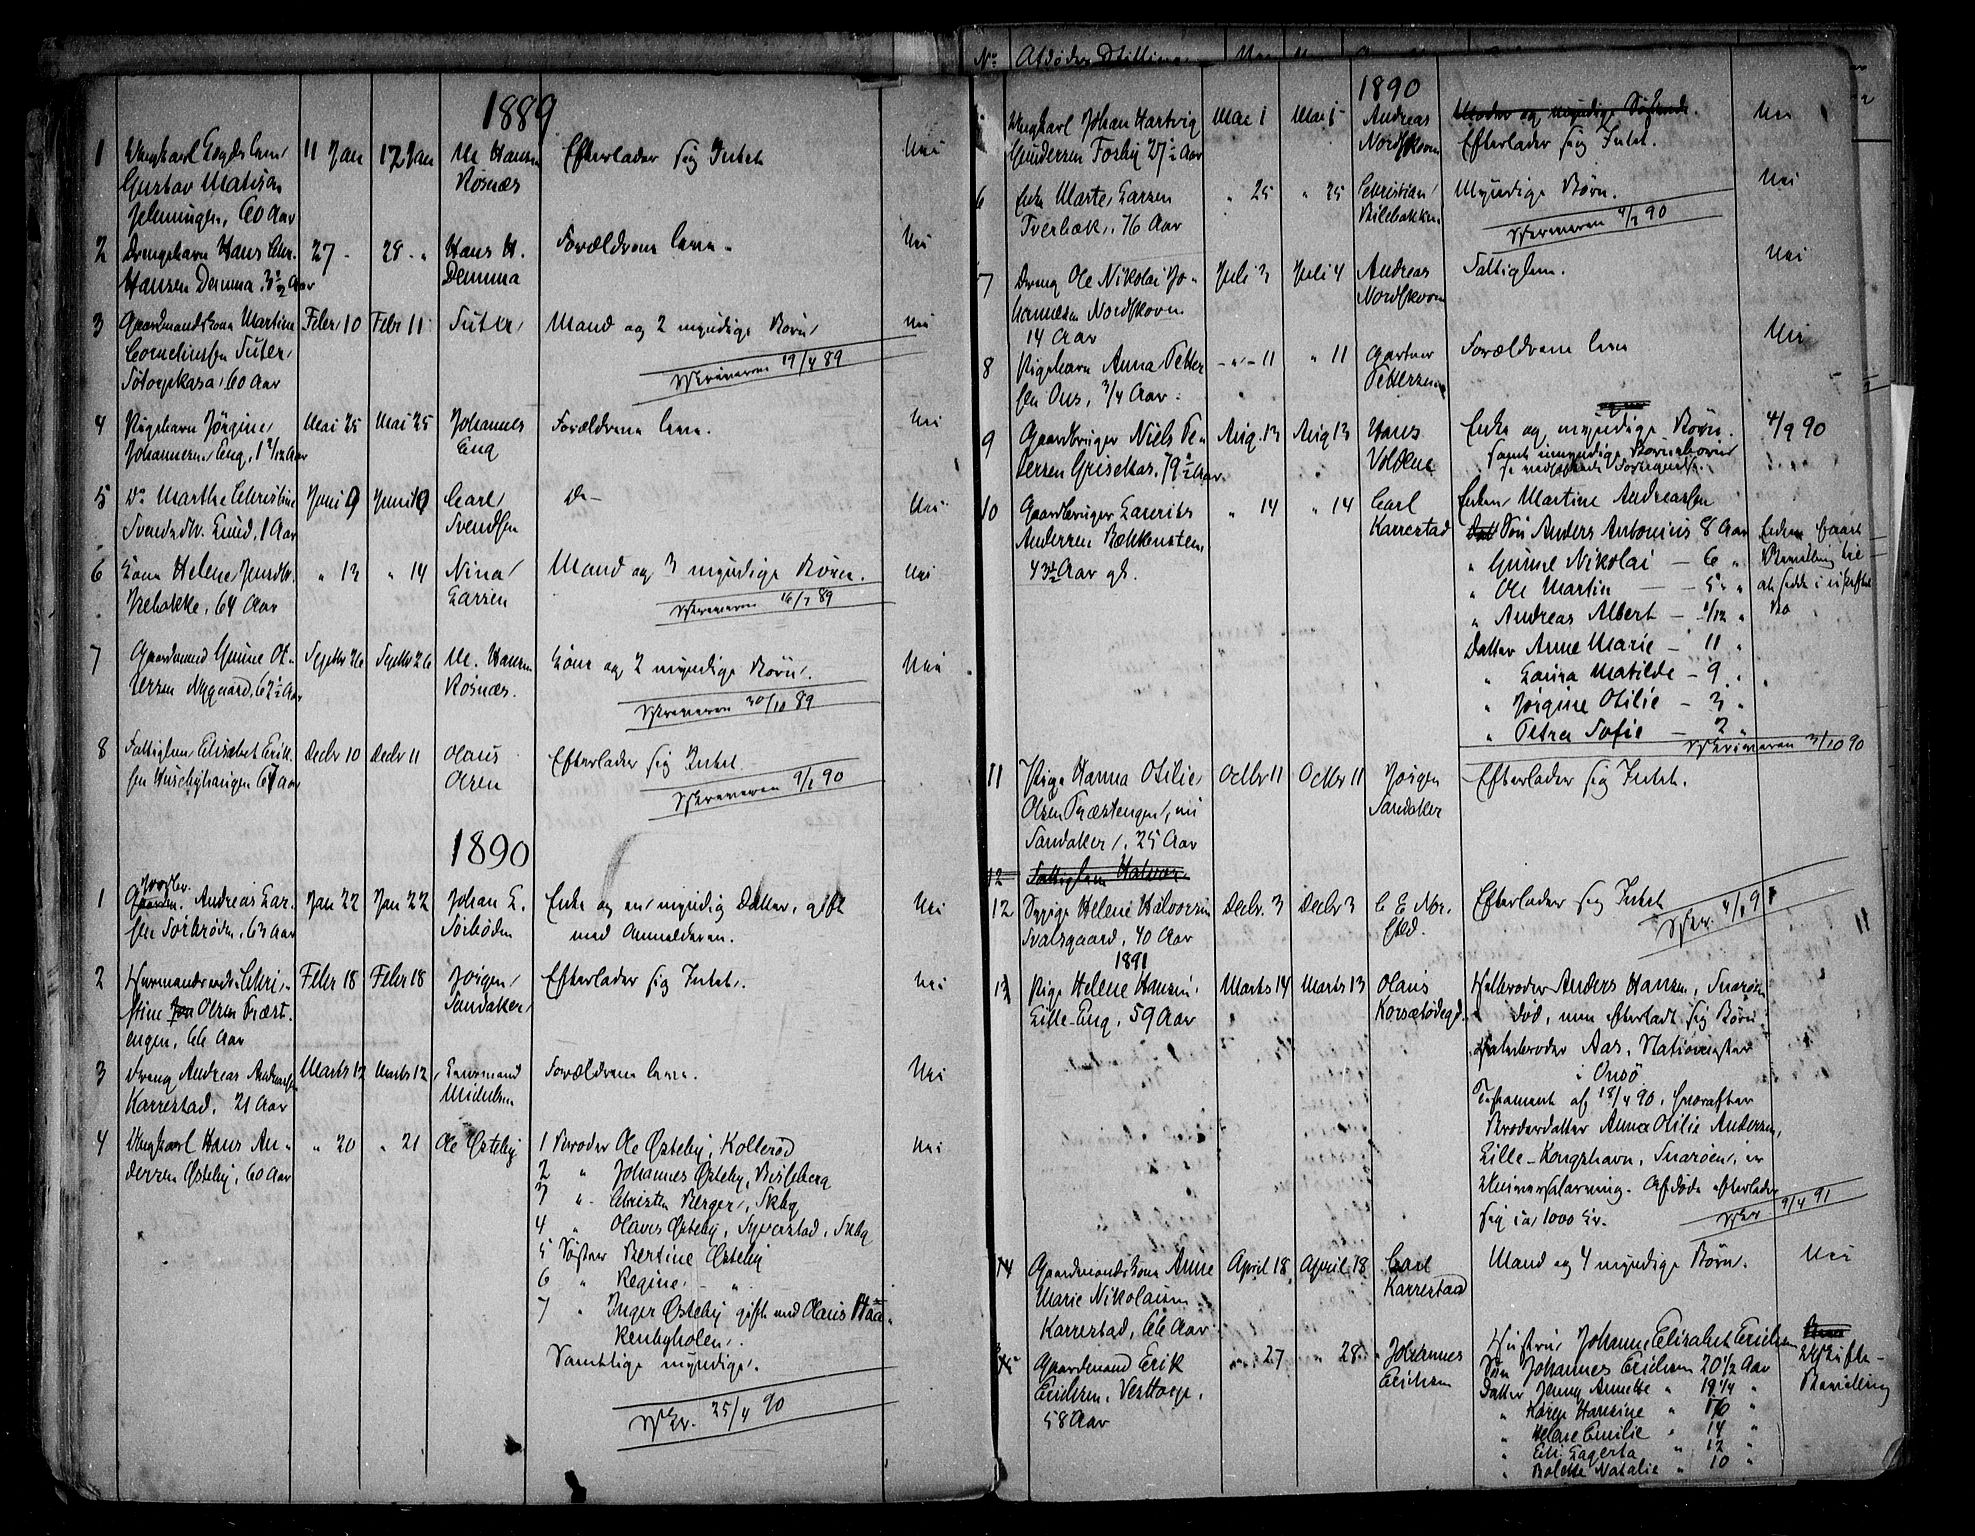 1889
1 Ungkarl Logdslem
Gustav Matison
Jelmingen, 60 Aar
11 Jan 12 Jan M. Hansen
Rosnæs
Efterlader sig Intet
Nei
2 Drengebarn Hans Chr.
Hansen Demma, 3½ Aar
27 - 28 - " Hans H.
Demma
Forældrene leve.
Nei
3 Gaardmandskone Martine
Corneliussen Tuter,
Aar
Febr 10 Febr 11 Tuter
Mand og 2 myndige Børn
Nei
Skriveren 19/4 89
4 Pigebarn Jørgine
Johannesen Eng, 1 2/12 Aar
Mai 25 Mai 25 Johannes
Eng
Forældrene leve.
Nei
5 Do Marthe Christine
Svendsdtr. Lund, 1 Aar
Juni 9 Juni 10 Carl
Svendsen
Do -
Nei
6 Kone Helene Jensdtr.
Trebakke, 64 Aar
" 13 " 14 Nina
Larsen
Mand og 3 myndige Børn.
Nei
Skriveren 16/7 89
7 Gaardmand Gunne Ot-
tersen Nygaard, 62½ Aar
Septbr 26 Septbr 26 M. Hansen
Rosnæs.
Kone og 2 myndige Børn.
Nei
Skriveren 30/10 89
8 Fattiglem Elisabet Erik-
sen Huschyhaugen 67 Aar
Decbr 10 Decbr 11 Olaus
Olsen
Efterlader sig Intet.
Skriveren 9/1 90
1890
1 Andreas Lar-
sen Torbrøden, 63 Aar
Jan 22 Jan 22 Johan L.
Enke og en myndig Datter, gift
med Anmelderen.
Nei
2 Chri-
stine Olsen Træst-
engen, 66 Aar
Febr 18 Febr 18 Jørgen
Sandaker
Efterlader sig Intet.
Nei
3 Dreng Andreas Andreasen
Karrestad, 21 Aar
Marts 12 Marts 12
Michelsen
Forældrene leve.
Nei
4 Ungkarl Hans An-
dersen Østeby, 60 Aar
" 20 " 21 Ole Østeby
1 Broder Ole Østeby, Kollerød
Nei
2 " Johannes Østeby, Buleberg
3 " Christen Berger, Skbg
4 " Olaves Østeby, Syverstad, Skbg
5 Søstner Bertine Østeby
6 " Regine - "
7 " Inger Østeby gift med Olaus Haa-
kenbyholen.
Samtlige myndige.
Skr. 25/4 90
No Afdødes Stilling
1890
Ungkarl Johan Hartvig
Gundersen Forby 27½ Aar
Mai 1 Mai 5 Andreas
Nordskoven
Moder og myndige Søskende.
Efterlader sig Intet.
Nei
6 Enke Marte Larsen
Tverbæk, 76 Aar
" 25 " 25 Christian
Bilebakken
Myndige Børn.
Nei
Skriveren 4/7 90
7 Dreng Ole Nikolai Jo-
hannesen Nordskoven
14 Aar
Juli 3 Juli 4 Andreas
Nordskoven
Fattiglem.
Nei
8 Pigebarn Anna Petter-
sen Ous, 3/4 Aar.
- " - 11 " 11 Gartner
Pettersen
Forældrene leve
Nei
9 Gaardbruger Niels Pe-
tersen Griseltas, 79½ Aar
Aug. 13 Aug 13 Hans
Voldene
Enke og myndige Børn.
samt umyndige Børnebørn
se vedføiede Fortegnelse.
4/9 90
10 Gaardbruger Laurits
Andersen Bækkensten,
43½ Aar gl.
" 14 " 14 Carl
Karrestad
Enken Martine Andreassen
Søn Anders Antonius 8 Aar
" Gunne Nikolai - 6 "
" Ole Martin - 5 "
" Andreas Albert - 1/12 "
Datter Anne Marie - 11 "
" Laura Matilde - 9 "
" Jørgine Otilie - 3 "
" Petra Sofie - 2 "
Enken faaet
Bevilling til
at sidde i uskiftet
Bo
Skriveren 3/10 90
11 Pige Hanna Otilie
Olsen Træstengen, nu
Sandaker, 25 Aar
Octbr 11 Octbr 11 Jørgen
Sandaker
Efterlader sig Intet.
12 Fattiglem Halvor
12 Helene Halvorsen
Svalsgaard, 40 Aar
Decbr. 3 Decbr 3
Efterlader sig Intet
Skr. 4/1 91
1891
13 Pige Helene Hansen,
Lille-Eng, 59 Aar
Marts 14 Marts 13 Olaus
Korsætødegd.
Helbroder Anders Hansen, Snarøen
død, men efterladt sig Børn
Halvbroder Aas, Stationsmester
i Onsø
Testament af 18/4 90, hvorefter
Broderdatter Anna Otilie Andersen,
Lille-Kongshavn, Snarøen, er
Universalarving. Afdøde efterlader
sig ca 1000 Kr.
Skr 9/4 91
14 Gaardmandskone Anne
Marie Nikolaisen
Karrestad, 66 Aar
April 18 April 18 Carl
Karrestad
Mand og 4 myndige Børn.
Nei
15 Gaardmand Erik
Erichsen, Vesttorp,
58 Aar
" 27 " 28 Johannes
Erichsen
Hustru Johanne Elisabet Erichsen
Søn Johannes Erichsen 20½ Aar
Datter Jenny Annette " 19¼ "
" Karen Hansine " 16 "
" Helene Emilie " 14 "
" Elli Lagerta " 12 "
" Bolette Natalie " 10 "
Uskifte-
Bevilling